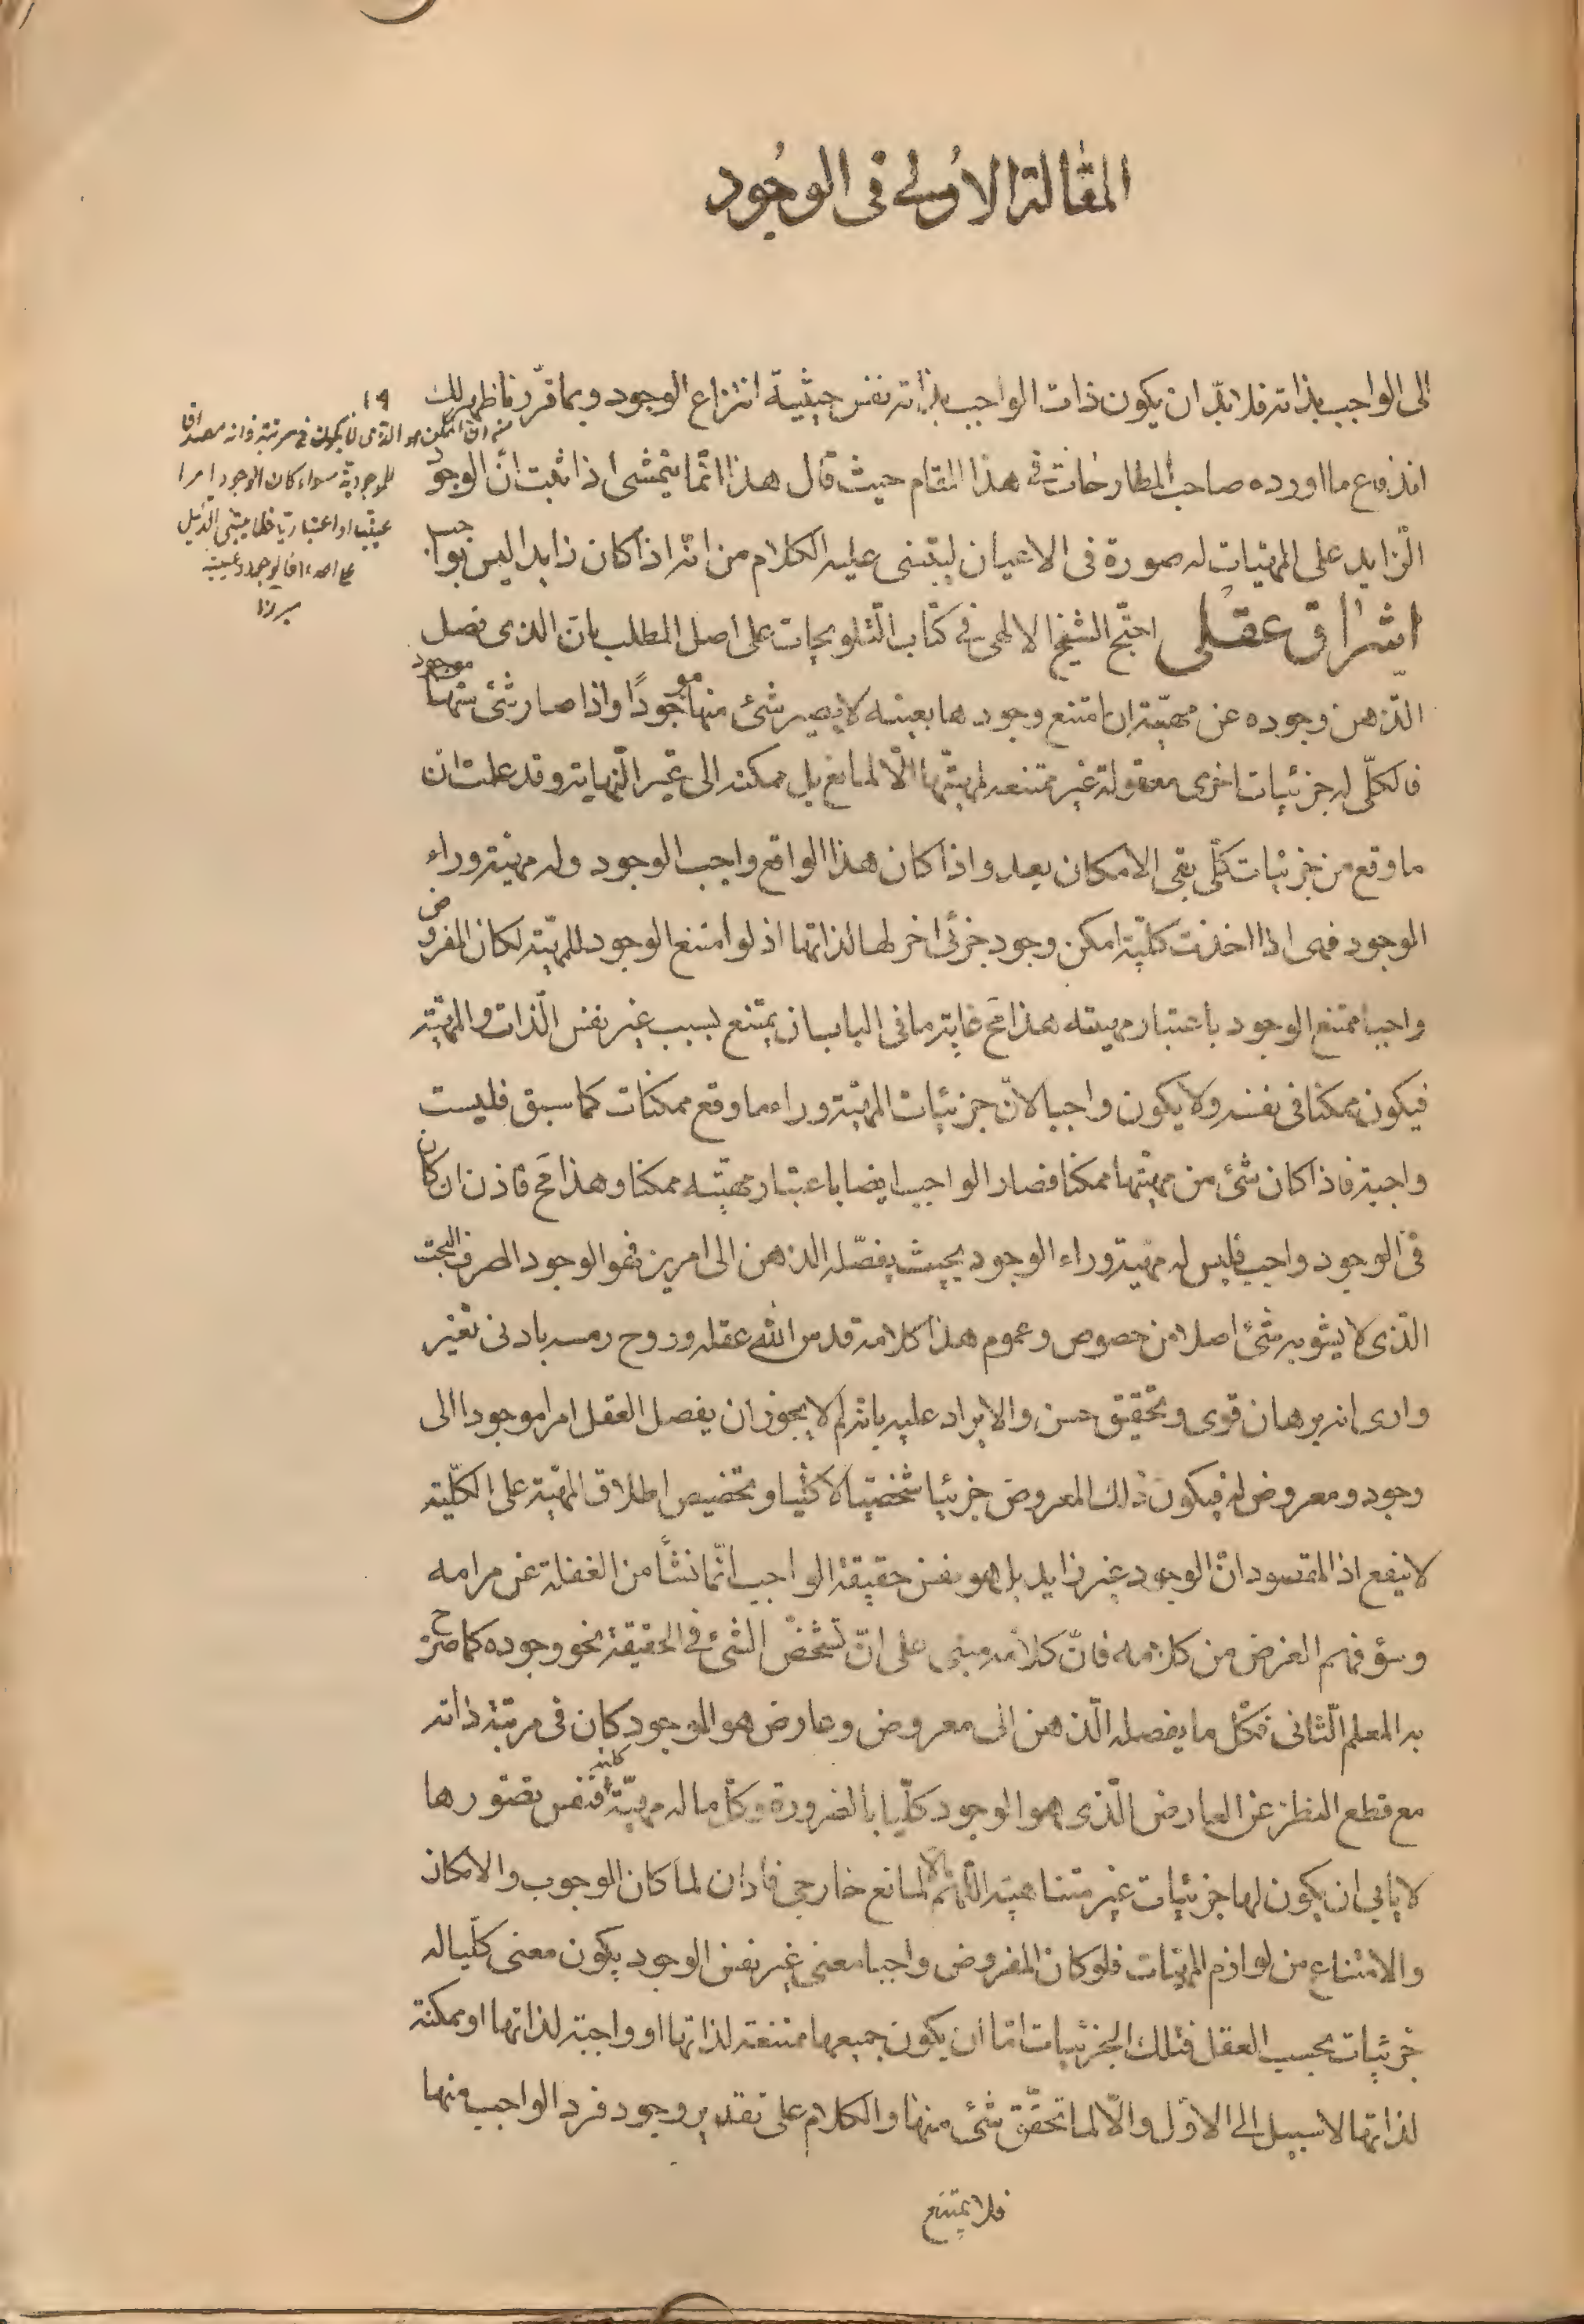 المقالة الاولى فى الوجود
الى الواجب بذاته فلا بدّ ان يكون ذات الواجب بذاته نفس حيثية انتزاع الوجود وبما قرّرنا ظهر لك
اندفاع ما اورده صاحب المطارحات فى هذا المقام حيث قال هذا انّما يتمشى اذا ثبت انّ الوجود
الزايد على المهيّات له صورة فى الاعيان ليبتنى عليه الكلام من انّه اذا كان زايدا ليس بواجب
اشراق عقلى احتجّ الشيخ الالهى فى كتاب التلويحات على اصل المطلب بانّ الذى فصل
الذهن وجوده عن مهيّته ان امتنع وجودها بعينه لا يصير شئ منها موجودًا واذا صار شئ منها موجود
فالكلّى له جزئيات اخرى معقولة غير ممتنعه لمهيّتها الّا لمانع بل ممكنه الى غير النّهاية وقد علمت ان
ما وقع من جزئيات كلّى بقى الامكان بعد واذا كان هذا الواقع واجب الوجود وله مهيّة وراء
الوجود فهى اذا اخذت كلّيّة امكن وجود جزئى اخر لها لذاتها اذ لو امتنع الوجود للمهيّة لكان المفروض
واجبا ممتنع الوجود باعتبار مهيته هذا مح غاية ما فى الباب ان يمتنع بسبب غير نفس الذات والمهيّة
فيكون ممكنا فى نفسه ولا يكون واجبا لانّ جزئيات المهيّة وراء ما وقع ممكنات كما سبق فليست
واجبة فاذا كان شئ من مهيّتها ممكنا فصار الواجب ايضا باعتبار مهيّته ممكنا وهذا مح فاذن ان كان
فى الوجود واجب فليس له مهيّة وراء الوجود بحيث يفصّله الذهن الى امرين فهو الوجود الصرف البحت
الّذى لا يشوبه شئ اصلا من خصوص وعموم هذا كلامه قدس الله عقله وروح رمسه بادنى تغيير
وارى انه برهان قوى وتحقيق حسن والايراد عليه بانّه لم لا يجوز ان يفصل العقل امرا موجودا الى
وجود ومعروض له فيكون ذلك المعروض جزئيا شخصيّا لا كلّيا وتخصيص اطلاق المهيّة على الكلّيّة
لا ينفع اذ المقصود انّ الوجود غير زايد بل هو نفس حقيقة الواجب انّما نشأ من الغفلة عن مرامه
وسؤ فهم الغرض من كلامه فانّ كلامه مبنى على انّ تشخّص الشئ فى الحقيقة نحو وجوده كما صرّح
به المعلم الثانى فكلّ ما يفصله الّذهن الى معروض وعارض هو الوجود كان فى مرتبة ذاته
مع قطع النظر عن العارض الّذى هو الوجود كلّيا بالضرورة وكلّ ما له مهيّة كليّه فنفس تصوّرها
لا يأبى ان يكون لها جزئيات غير متناهية الّا لمانع خارجى فاذان لما كان الوجوب والامكان
والامتناع من لوازم المهيّات فلو كان المفروض واجبا معنى غير نفس الوجود يكون معنى كلّيا له
جزئيات بحسب العقل فتلك الجزئيات امّا ان يكون جميعها ممتنعة لذاتها او واجبة لذاتها او ممكنة
لذاتها لا سبيل الى الاوّل والّا لما تحقّق شئ منها والكلام على تقدير وجود فرد الواجب منها
فلا يمتنع
للموجودية سواء كان الوجود امرا
عينيّا او اعتباريّا
ميرزا